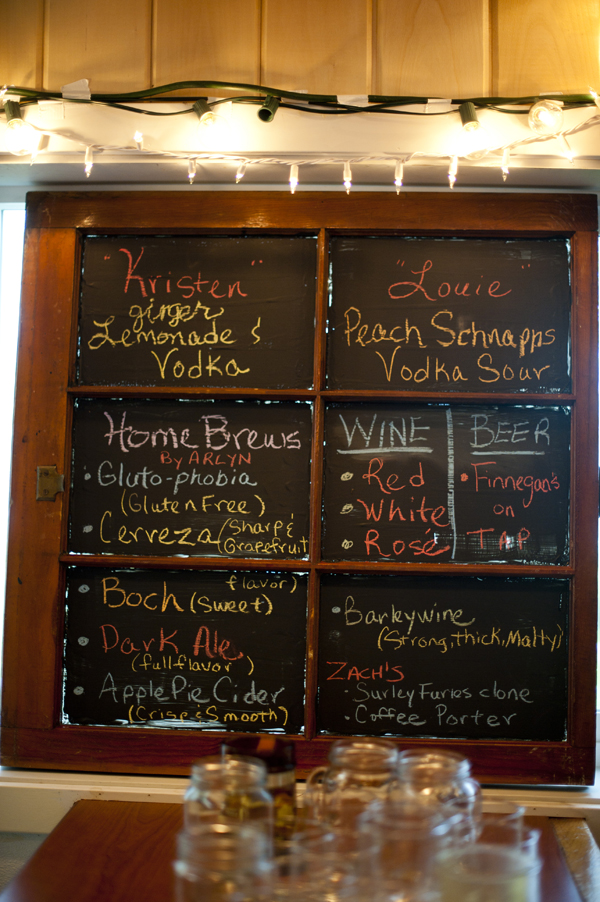 "Kristen"
ginger
Lemonade &
Vodka
"Louie"
Peach Schnapps
Vodka Sour
Home Brews
By ARLYN
• Gluto-phobia
(Gluten Free)
• Cerveza (Sharp &
Grapefruit
flavor)
WINE
• Red
• White
• Rosé
BEER
• Finnegan's
on
TAP
• Boch (Sweet)
• Dark Ale
(full flavor)
• Apple Pie Cider
(Crisp & Smooth)
• Barleywine
(Strong, thick, Malty)
ZACH'S
• Surley Furies clone
• Coffee Porter